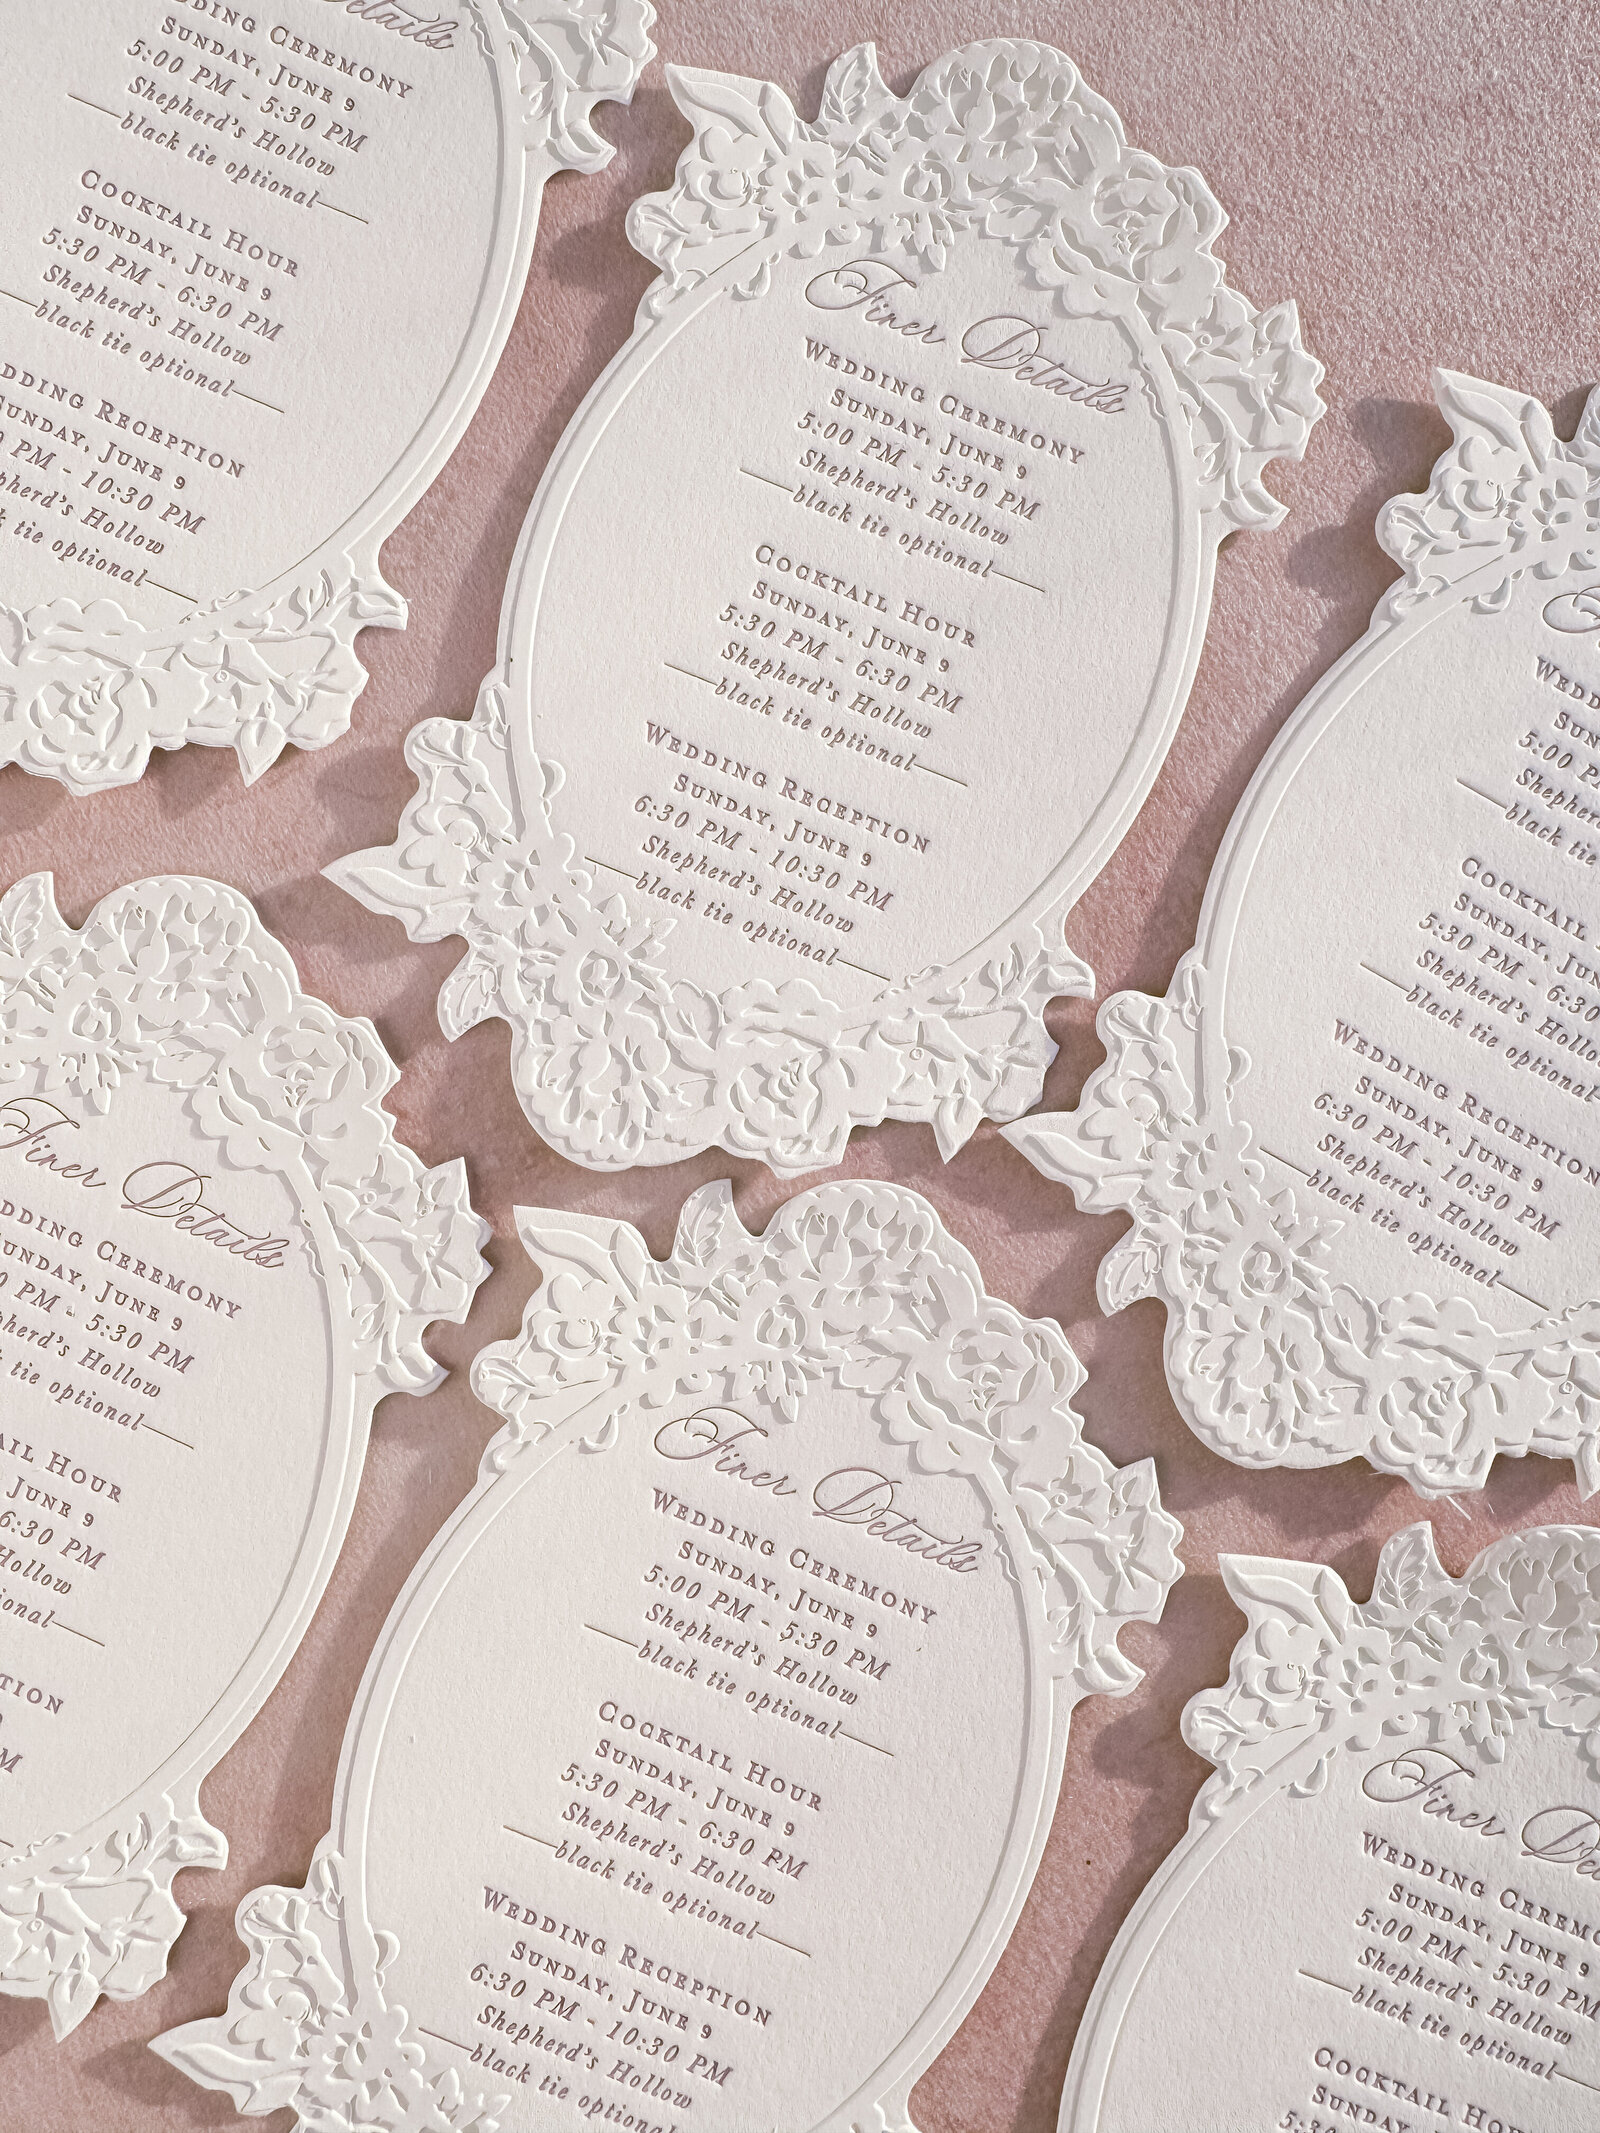 Details
DING CEREMONY
SUNDAY, JUNE 9
5:00 PM - 5:30 PM
Shepherd's Hollow
black tie optional
COCKTAIL HOUR
SUNDAY, JUNE 9
5:30 PM - 6:30 PM
Shepherd's Hollow
black tie optional
DDING RECEPTION
SUNDAY, JUNE 9
PM - 10:30 PM
pherd's Hollow
tie optional
Finer Details
WEDDING CEREMONY
SUNDAY, JUNE 9
5:00 PM - 5:30 PM
Shepherd's Hollow
black tie optional
COCKTAIL HOUR
SUNDAY, JUNE 9
5:30 PM - 6:30 PM
Shepherd's Hollow
black tie optional
WEDDING RECEPTION
SUNDAY, JUNE 9
6:30 PM - 10:30 PM
Shepherd's Hollow
black tie optional
WEDD
SUN
5:00 P
Shepher
black tie
COCKTAIL
SUNDAY, JUN
5:30 PM - 6:30
Shepherd's Hollo
black tie optional
WEDDING RECEPTION
SUNDAY, JUNE 9
6:30 PM - 10:30 PM
Shepherd's Hollow
black tie optional
Finer Details
DDING CEREMONY
UNDAY, JUNE 9
0 PM - 5:30 PM
herd's Hollow
tie optional
AIL HOUR
JUNE 9
6:30 PM
Hollow
ional
TION
9
M
Finer Details
WEDDING CEREMONY
SUNDAY, JUNE 9
5:00 PM - 5:30 PM
Shepherd's Hollow
black tie optional
COCKTAIL HOUR
SUNDAY, JUNE 9
5:30 PM - 6:30 PM
Shepherd's Hollow
black tie optional
WEDDING RECEPTION
SUNDAY, JUNE 9
6:30 PM - 10:30 PM
Shepherd's Hollow
black tie optional
Finer De
WEDDING CEREMO
SUNDAY, JUNE 9
5:00 PM - 5:30 PM
Shepherd's Hollow
black tie optional
COCKTAIL HOU
SUNDAY, JUN
5:3